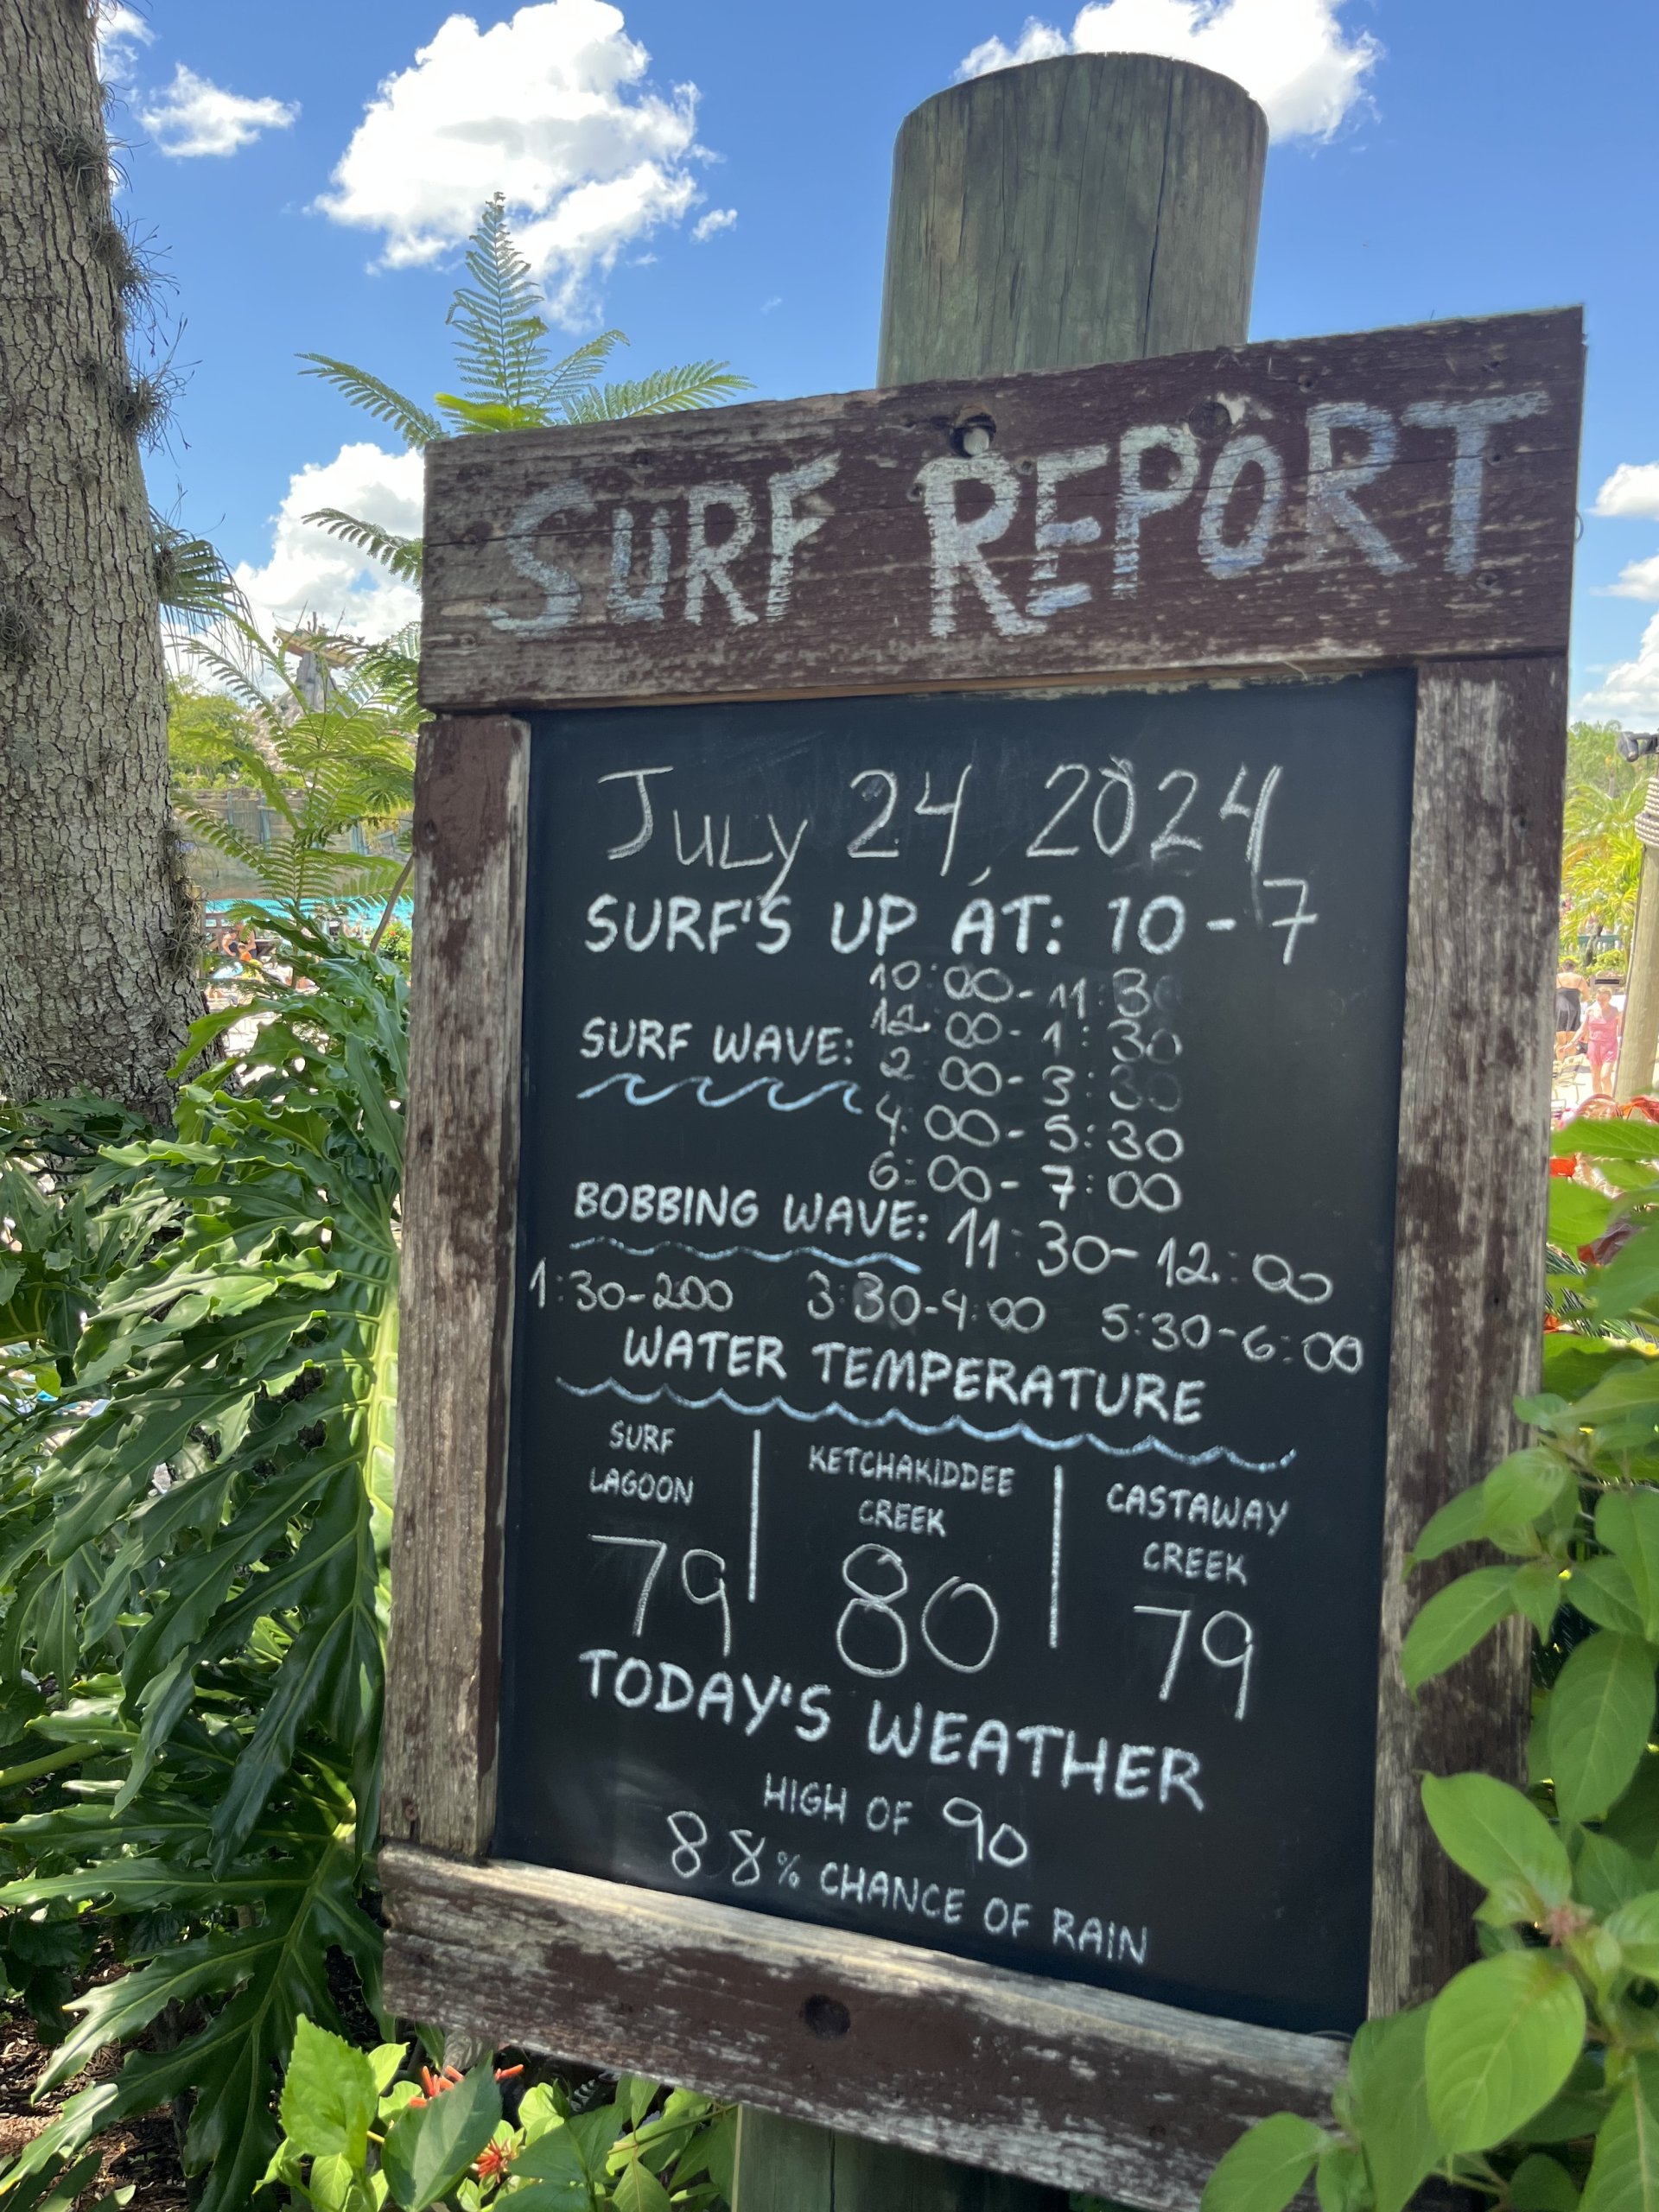 SURF REPORT
JULY 24, 2024
SURF'S UP AT: 10-7
SURF WAVE:
10:00-11:30
12:00-1:30
2:00-3:30
4:00-5:30
6:00-7:00
BOBBING WAVE: 11:30-12:00
1:30-200 3:30-4:00 5:30-6:00
WATER TEMPERATURE
SURF
LAGOON
79
KETCHAKIDDEE
CREEK
80
CASTAWAY
CREEK
79
TODAY'S WEATHER
HIGH OF 90
88% CHANCE OF RAIN